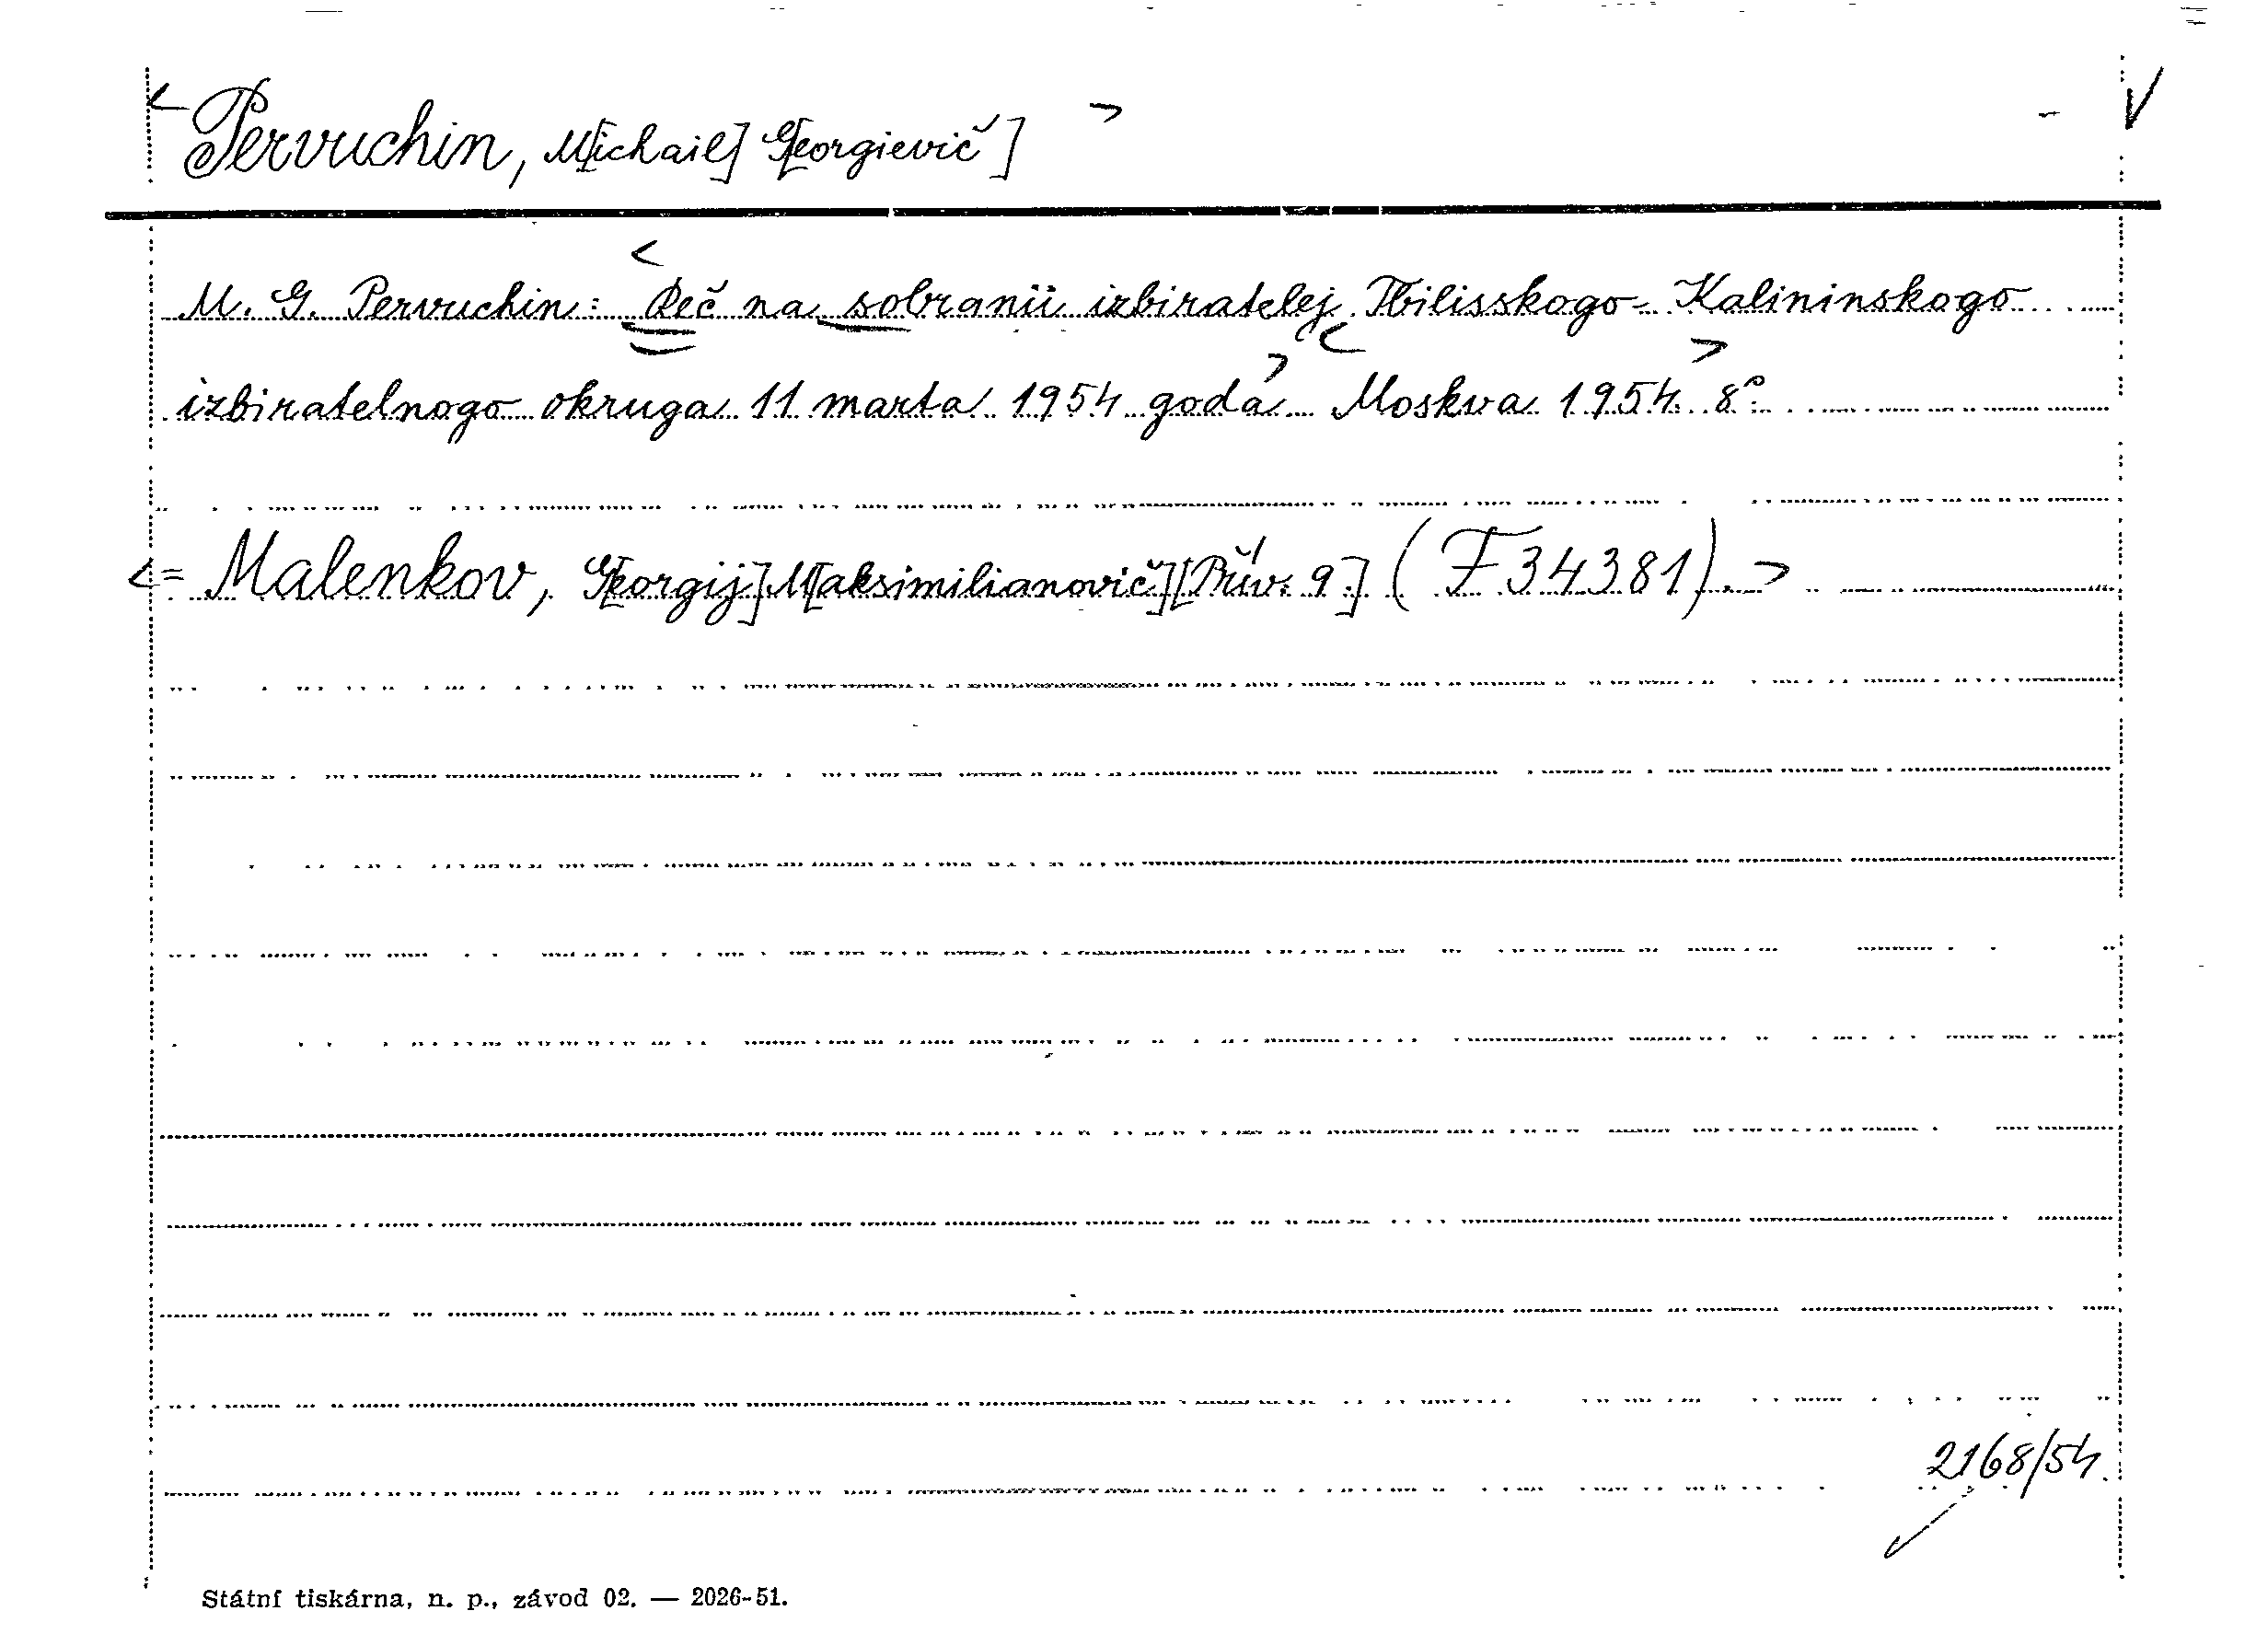 Pervuchin, M[ichail] G[eorgievič]
M. G. Pervuchin: Reč na sobranii izbiratelej Tbilisskogo-Kalininskogo
izbiratelnogo okruga 11 marta 1954 goda Moskva 1954. 8°.
= Malenkov, G[eorgij] M[aksimilianovič] [Přív. 9.] (F 34381).
2168/54.
Státní tiskárna, n. p., závod 02. — 2026-51.